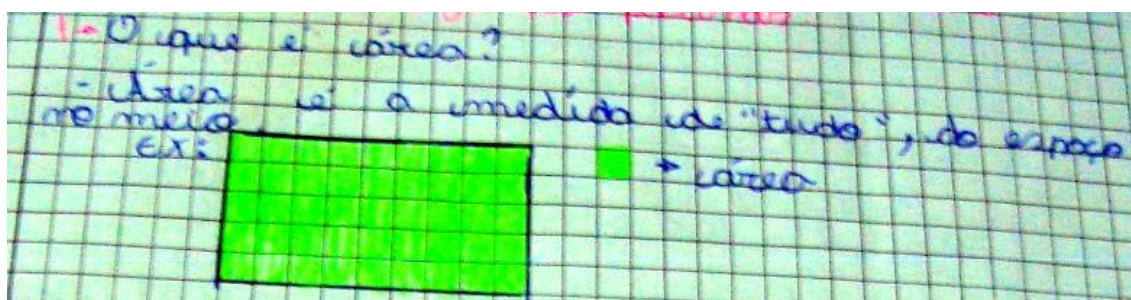 1-O que é área?
- Área é a medida de "tudo", do espaço
no meio.
EX:
→ área